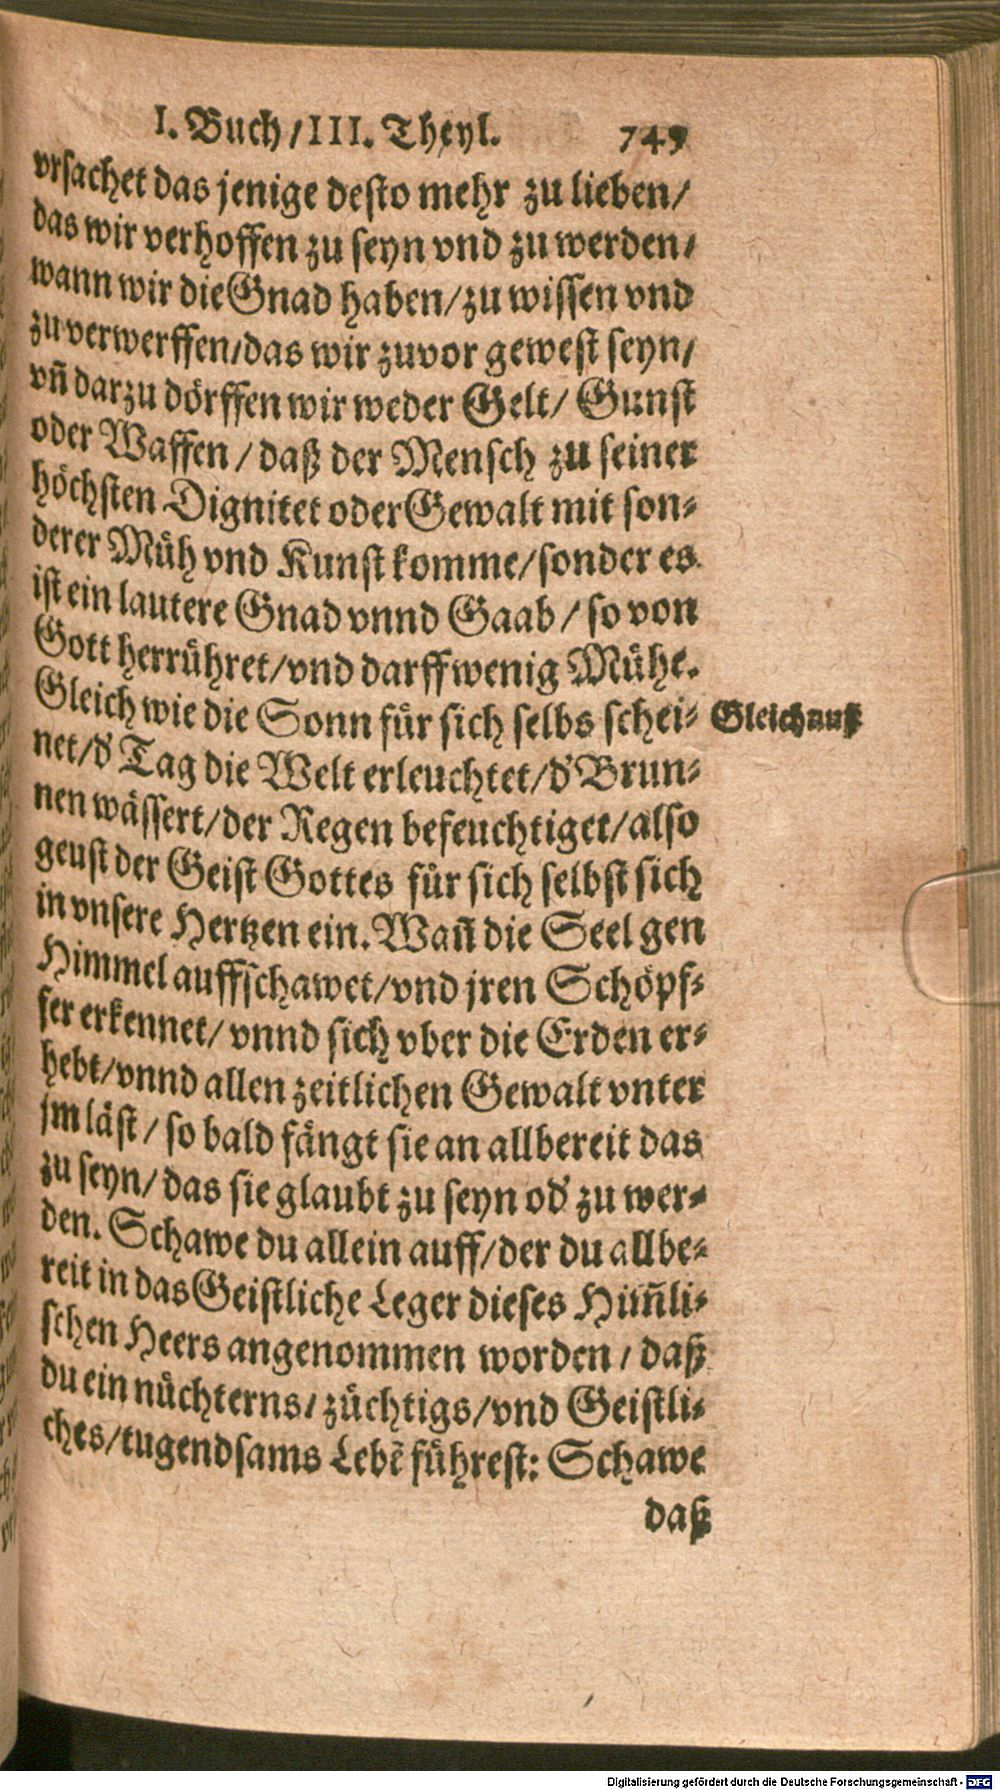 I. Buch / III. Theyl. 749
vrsachet das jenige desto mehr zu lieben /
das wir verhoffen zu seyn vnd zu werden /
wann wir die Gnad haben / zu wissen vnd
zu verwerffen / das wir zuvor gewest seyn /
vn̄ darzu dörffen wir weder Gelt / Gunst
oder Waffen / daß der Mensch zu seiner
höchsten Dignitet oder Gewalt mit son-
derer Müh vnd Kunst komme / sonder es
ist ein lautere Gnad vnnd Gaab / so von
Gott herrühret / vnd darff wenig Mühe.
Gleich wie die Sonn für sich selbs schei- Gleichnuß
net / d' Tag die Welt erleuchtet / d' Brun-
nen wässert / der Regen befeuchtiget / also
geust der Geist Gottes für sich selbst sich
in vnsere Hertzen ein. Wan̄ die Seel gen
Himmel auffschawet / vnd jren Schöpf-
fer erkennet / vnnd sich vber die Erden er-
hebt / vnnd allen zeitlichen Gewalt vnter
jm läst / so bald fängt sie an allbereit das
zu seyn / das sie glaubt zu seyn od' zu wer-
den. Schawe du allein auff / der du allbe-
reit in das Geistliche Leger dieses Him̄li-
schen Heers angenommen worden / daß
du ein nüchterns / züchtigs / vnd Geistli-
ches / tugendsams Lebē führest: Schawe
daß
Digitalisierung gefördert durch die Deutsche Forschungsgemeinschaft - DFG